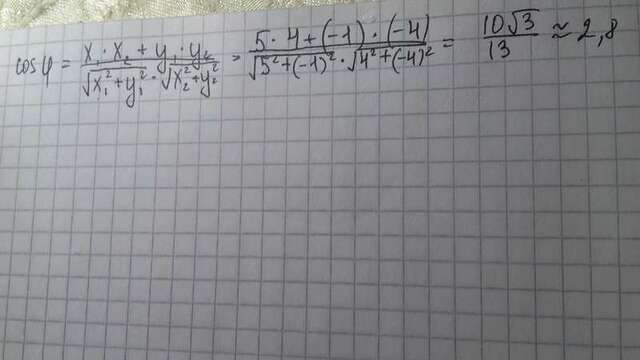 cos φ = (x₁ · x₂ + y₁ · y₂) / (√(x₁² + y₁²) · √(x₂² + y₂²)) = (5 · 4 + (-1) · (-4)) / (√(5² + (-1)²) · √(4² + (-4)²)) = 10√3 / 13 ≈ 2,8